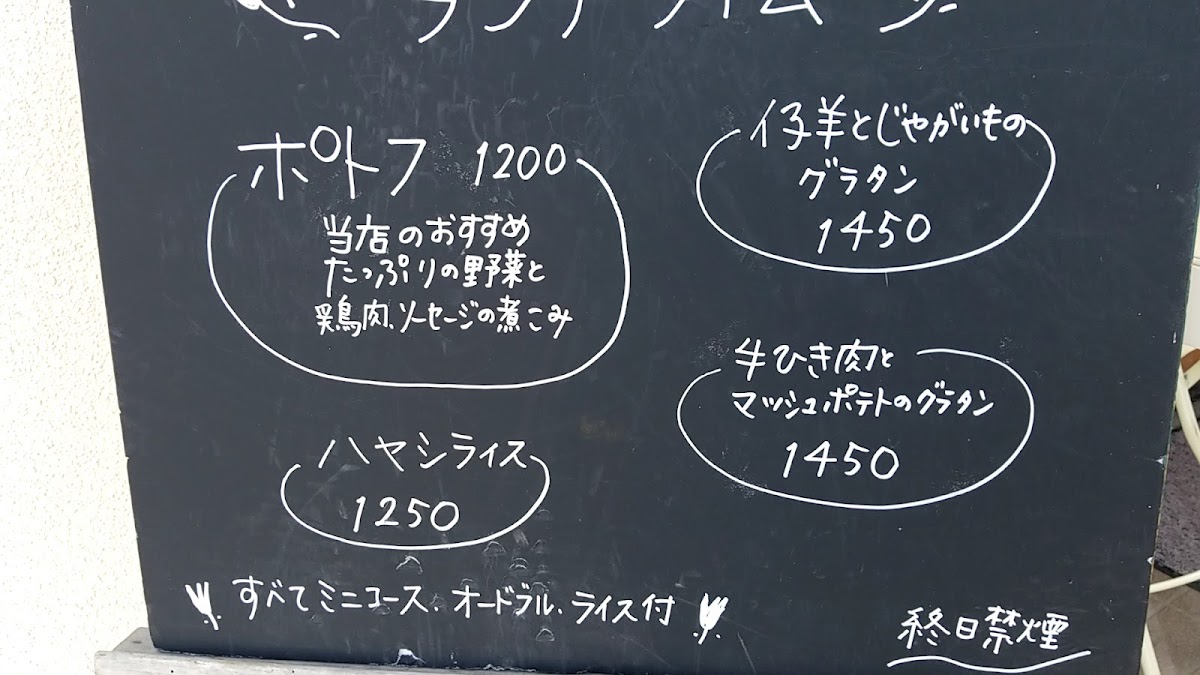 ランチタイム
ポトフ 1200
当店のおすすめ
たっぷりの野菜と
鶏肉、ソーセージの煮こみ
ハヤシライス
1250
仔羊とじゃがいもの
グラタン
1450
牛ひき肉と
マッシュポテトのグラタン
1450
すべてミニコース、オードブル、ライス付
終日禁煙